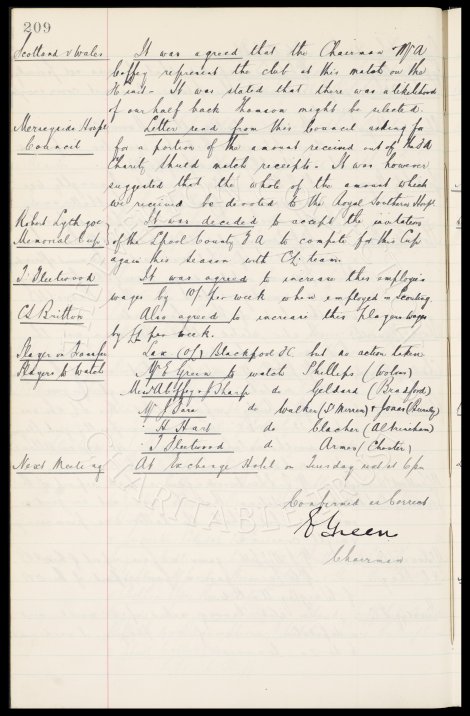 209
Scotland v Wales It was agreed that the Chairman & Mr A
Coffey represent the club at this match on the
 It was stated that there was a likelihood
of our half back Thomson might be selected.
Merseyside Hospl Letter read from this Council asking for
Council for a portion of the amount received out of the
Charity Shield match receipts. It was however
suggested that the whole of the amount which
we received be devoted to the Royal Southern Hospl
Robert Lythgoe It was decided to accept the invitation
Memorial Cup of the Lpool County F A to compete for this Cup
again this season with "A" team.
T. Fleetwood It was agreed to increase this employee's
wages by 10/- per week when employed in scouting
C S Britton Also agreed to increase this players wages
by £1 per week.
Player on Transfer Lax (of) Blackpool F.C. but no action taken
Players to Watch Mr E Green to watch Phillips (Wolves)
Mess A Coffey & J Sharp do Geldard (Bradford)
Mr do Walker (St Mirren) & Jones
" H Hart do Clacher (Altrincham)
" T Fleetwood do Armes (Chester)
Next Meeting At Exchange Hotel on Tuesday next at 6pm
Confirmed as Correct
E Green
Chairman